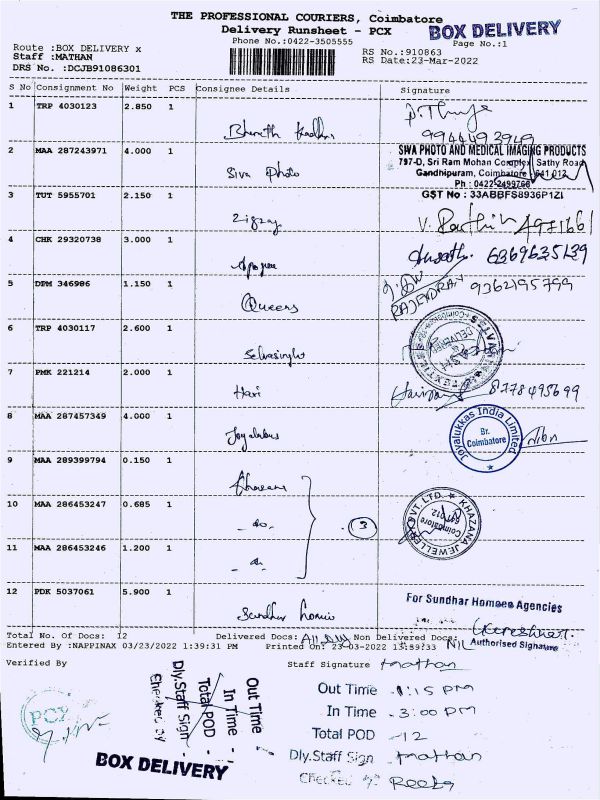 THE PROFESSIONAL COURIERS, Coimbatore
Delivery Runsheet - PCX
BOX DELIVERY
Phone No.:0422-3505555
Page No.:1
Route :BOX DELIVERY x
Staff :MATHAN
DRS No. :DCJB91086301
RS No.:910863
RS Date:23-Mar-2022
S No Consignment No Weight PCS Consignee Details Signature
1 TRP 4030123 2.850 1
9944493949
2 MAA 287243971 4.000 1 Siva Photo
SIWA PHOTO AND MEDICAL IMAGING PRODUCTS
797-D, Sri Ram Mohan Complex, Sathy Road
Gandhipuram, Coimbatore - 641 012
Ph : 0422-2499766
GST No : 33ABBFS8936P1ZI
3 TUT 5955701 2.150 1 Zigzay
4 CHK 29320738 3.000 1
6369635139
5 DPM 346986 1.150 1 Queens
RAJENDRAN 9362195799
6 TRP 4030117 2.600 1 Selvasingh
7 PMK 221214 2.000 1 Hari
8778495699
8 MAA 287457349 4.000 1 Joyalukkas
Joyalukkas India Limited
Br.
Coimbatore
9 MAA 289399794 0.150 1 Khazana
10 MAA 286453247 0.685 1 - do -
3
KHAZANA JEWELLERY PVT. LTD.
Coimbatore
641 012
11 MAA 286453246 1.200 1 - do -
12 PDK 5037061 5.900 1 Sundhar homeo
For Sundhar Homoeo Agencies
Authorised Signature
Total No. Of Docs: 12 Delivered Docs: All Dly Non Delivered Docs: NIL
Entered By :NAPPINAX 03/23/2022 1:39:31 PM Printed On: 23-03-2022 13:39:33
Verified By
Staff Signature Mathan
Out Time 1:15 PM
In Time 3:00 PM
Total POD - 12
Dly.Staff Sign Mathan
Checked By Reeta
Out Time -
In Time -
Total POD -
Dly.Staff Sign -
Checked By
PCX
BOX DELIVERY